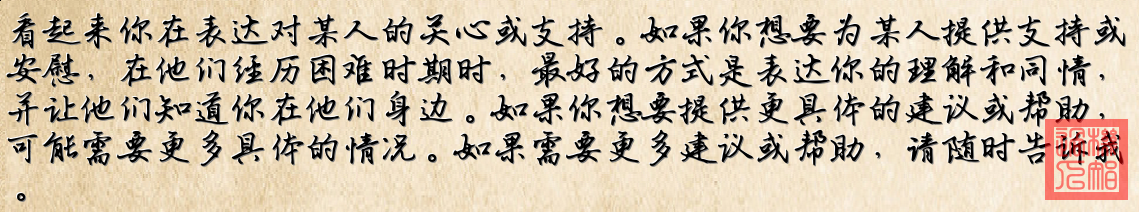 看起来你在表达对某人的关心或支持。如果你想要为某人提供支持或
安慰，在他们经历困难时期时，最好的方式是表达你的理解和同情，
并让他们知道你在他们身边。如果你想要提供更具体的建议或帮助，
可能需要更多具体的情况。如果需要更多建议或帮助，请随时告诉我
。